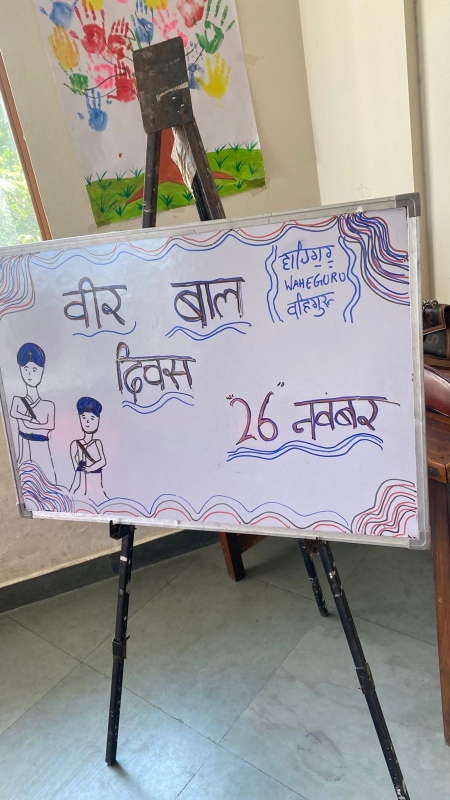 वीर बाल
दिवस
ਵਾਹਿਗੁਰੂ
WAHEGURU
वाहेगुरु
"26" नवंबर